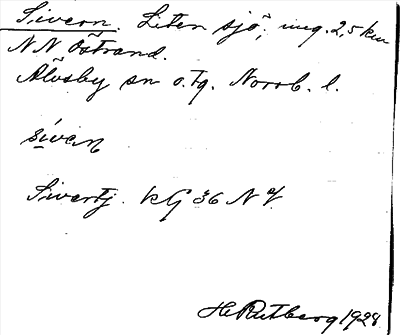 Sivern. Liten sjö, ung. 2,5 km
NN Östrand.
Älvsby sn o. tg. Norrb. l.
siven
Sivertj. kG 36 N
H. Rutberg 1928